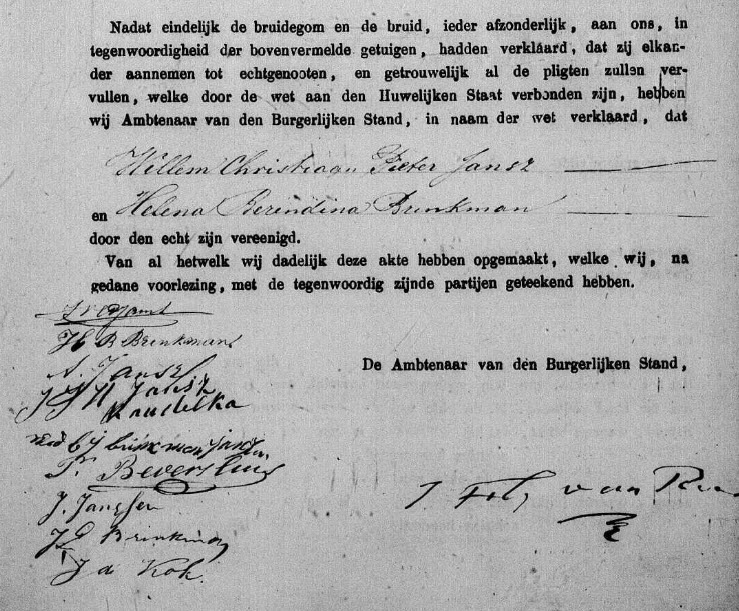 Nadat eindelijk de bruidegom en de bruid, ieder afzonderlijk, aan ons, in
tegenwoordigheid der bovenvermelde getuigen, hadden verklaard, dat zij elkan-
der aannemen tot echtgenooten, en getrouwelijk al de pligten zullen ver-
vullen, welke door de wet aan den Huwelijken Staat verbonden zijn, hebben
wij Ambtenaar van den Burgerlijken Stand, in naam der wet verklaard, dat
Willem Christiaan Pieter Jansz
en Helena Berendina Brinkman
door den echt zijn vereenigd.
Van al hetwelk wij dadelijk deze akte hebben opgemaakt, welke wij, na
gedane voorlezing, met de tegenwoordig zijnde partijen geteekend hebben.
H B Brinkman
A. Jansz
De Ambtenaar van den Burgerlijken Stand,
J J H Jansz
Kaudelka
P. Beversluis
J. Janssen
J D Brinkman
J a Kok.